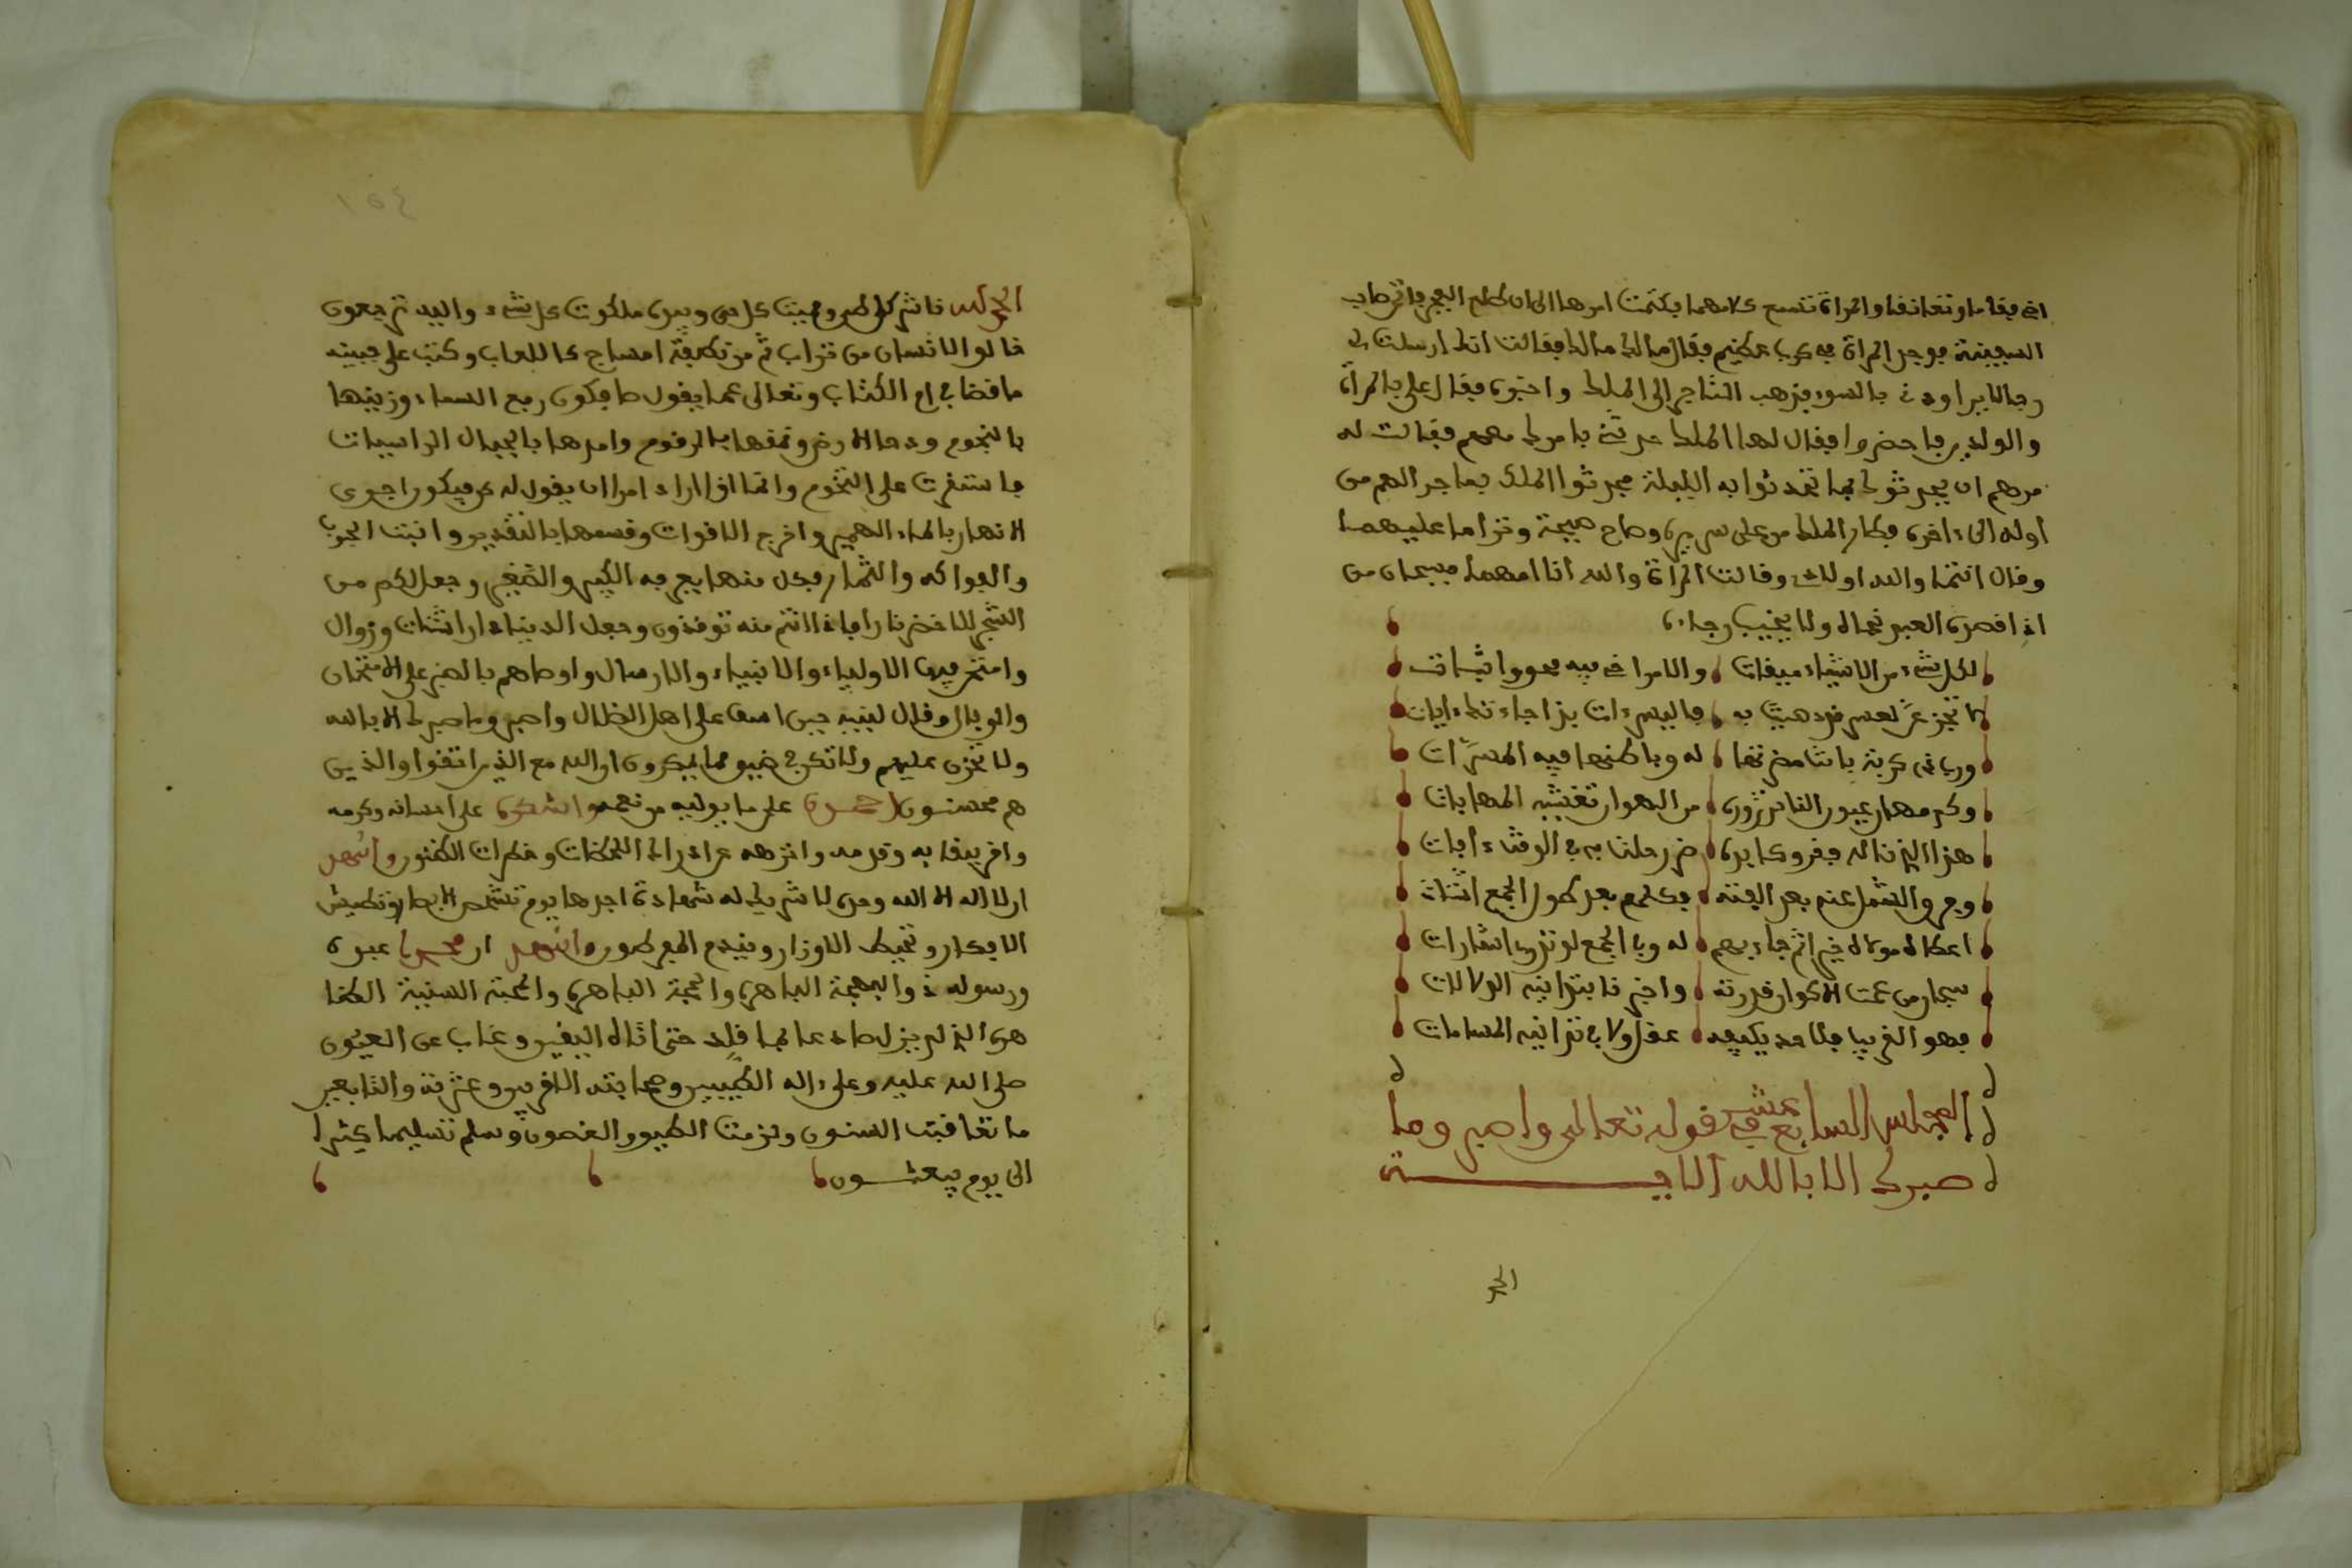 اخي فقاما وتعانقا والمراة تسمع كلامهما فكتمت امرها الى ان طلع الفجر فاتى صاحب
السفينة فوجد المراة في كرب عظيم فقال مالك مالك فقالت انك ارسلت لي
رجالا يراودني بالسوء فذهب التاجر الى الملك واخبره فقال علي بالمراة
والولدين فاحضروا فقال لها الملك حدثي بامرك معهم فقالت له
مرهم ان يحدثوك بما تحدثوا به الليلة فحدثوا الملك بما جرا لهم من
اوله الى ءاخره فطار الملك من على سريره وصاح صيحة وتراما عليهما
وقال انتما والله اولادي وقالت المراة والله انا امهما فسبحان من
اذا قصده العبد نجاه ولا يخيب رجاه
لكل شيء من الاشياء ميقات والامر اخي فيه محو واثبات
لا تجزعن لعسر قد دهيت به فاليسر ءات بذا جاءتك ءايات
ورب ذي كربة باتت مضرتها له وباطنها فيه المسرات
وكم مهان عيون الناس تزوره من الهوان تغشيه المهابات
هذا الذي ناله فقر وكابده ضر وحلت به في الوقت ءافات
وفرق الشمل عنه بعد الفته فكلهم بعد طول الجمع اشتات
اعطاه مولاه خيرا ثم جاء بهم له وبالجمع لو تدري اشارات
سبحان من عمت الاكوان قدرته واخبرتنا بتدانيه الدلالات
فهو القريب فلا حد يكيفه عقل ولا في تدانيه المسامات
المجلس السابع عشر في قوله تعالى واصبر وما
صبرك الا بالله الايـــة
الحمد
١٥٤
الحمد لله ناشر كل طي ومميت كل حي وبيده ملكوت كل شيء واليه ترجعون
خالق الانسان من تراب ثم من نطفة امشاج كاللعاب وكتب على جبينه
ما قضا في ام الكتاب وتعالى عما يقول ما فيكون رفع السماء وزينها
بالنجوم ودحا الارض ونمقها بالرقوم وامدها بالجبال الراسيات
فاستقرت على التخوم وانما اذا اراد امرا ان يقول له كن فيكون اجرى
الانهار بالماء النمير واخرج الاقوات وقسمها بالتقدير وانبت الحبوب
والفواكه والثمار فكل منها يفرح به الكبير والصغير وجعل لكم من
الشجر الاخضر نارا فاذا انتم منه توقدون وجعل الدنيا دار اشتات وزوال
وامتحن فيها الاولياء والانبياء والارسال واوصاهم بالصبر على الامتحان
والوبال وقال لنبيه حين اسف على اهل الضلال واصبر وما صبرك الا بالله
ولا تحزن عليهم ولا تك في ضيق مما يمكرون ان الله مع الذين اتقوا والذين
هم محسنون احمده على ما يوليه من نعمه واشكره على احسانه وكرمه
واقر ببقايه وقدمه وانزهه عن ادراك اللحظات وخطرات الظنون واشهد
ان لا اله الا الله وحده لا شريك له شهادة اجدها يوم تشخص الابصار وتطيش
الافكار وتحيط الاوزار ويندم المفرطون واشهد ان محمدا عبده
ورسوله ذو البهجة الباهرة والحجة الباهرة والمحبة السنية الظا
هرة الذي لم يزل صادعا بما قلد حتى اتاه اليقين وغاب عن العيون
صلى الله عليه وعلى ءاله الطيبين وصحابته الاقربين وعترته والتابعين
ما تعاقبت السنون وترنمت الطيور والغصون وسلم تسليما كثيرا
الى يوم يبعثـــون